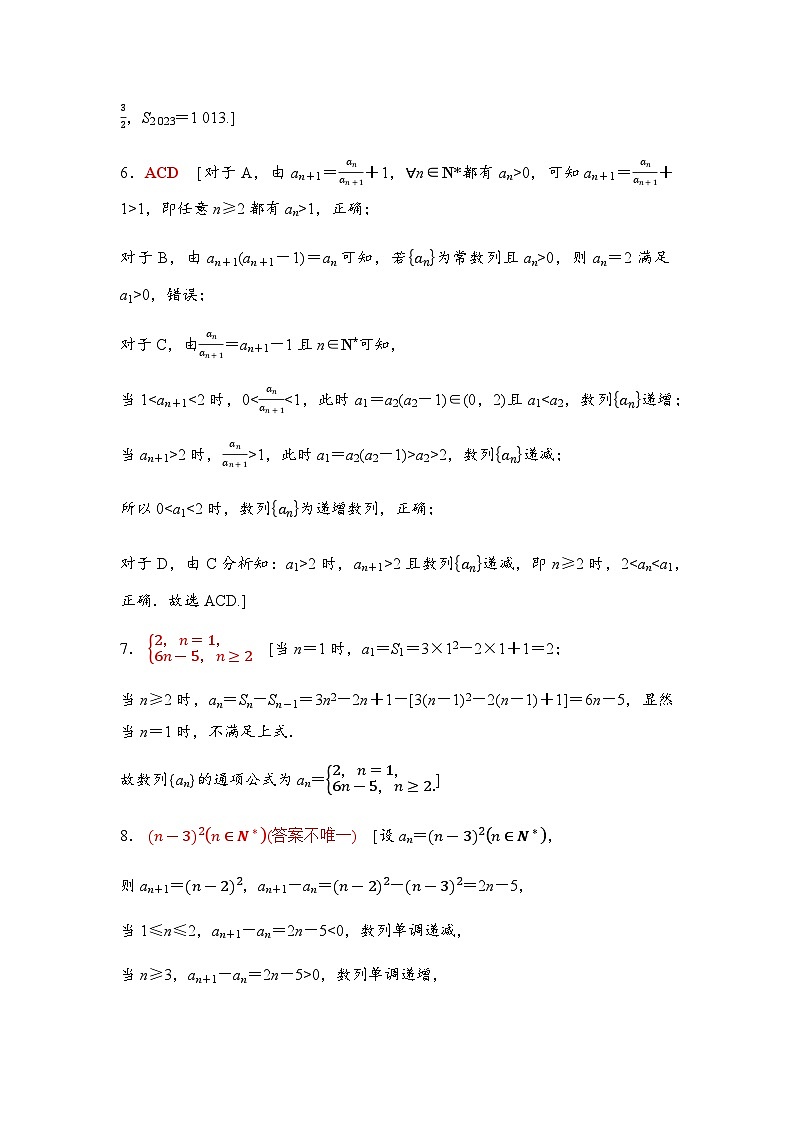 3/2，S₂ ₀₂₃＝1 013.]
6．ACD [对于 A，由 aₙ₊₁＝aₙ/aₙ₊₁＋1，∀n∈N*都有 aₙ>0，可知 aₙ₊₁＝aₙ/aₙ₊₁＋
1>1，即任意 n≥2 都有 aₙ>1，正确；
对于 B，由 aₙ₊₁(aₙ₊₁－1)＝aₙ 可知，若{aₙ}为常数列且 aₙ>0，则 aₙ＝2 满足
a₁>0，错误；
对于 C，由aₙ/aₙ₊₁＝aₙ₊₁－1 且 n∈N*可知，
当 1<aₙ₊₁<2 时，0<aₙ/aₙ₊₁<1，此时 a₁＝a₂(a₂－1)∈(0，2)且 a₁<a₂，数列{aₙ}递增；
当 aₙ₊₁>2 时，aₙ/aₙ₊₁>1，此时 a₁＝a₂(a₂－1)>a₂>2，数列{aₙ}递减；
所以 0<a₁<2 时，数列{aₙ}为递增数列，正确；
对于 D，由 C 分析知：a₁>2 时，aₙ₊₁>2 且数列{aₙ}递减，即 n≥2 时，2<aₙ<a₁，
正确．故选 ACD.]
7．{2，n＝1，
6n－5，n≥2 [当 n＝1 时，a₁＝S₁＝3×1²－2×1＋1＝2；
当 n≥2 时，aₙ＝Sₙ－Sₙ₋₁＝3n²－2n＋1－[3(n－1)²－2(n－1)＋1]＝6n－5，显然
当 n＝1 时，不满足上式．
故数列{aₙ}的通项公式为 aₙ＝{2，n＝1，
6n－5，n≥2.]
8．(n－3)²(n∈N*)(答案不唯一) [设 aₙ＝(n－3)²(n∈N*)，
则 aₙ₊₁＝(n－2)²，aₙ₊₁－aₙ＝(n－2)²－(n－3)²＝2n－5，
当 1≤n≤2，aₙ₊₁－aₙ＝2n－5<0，数列单调递减，
当 n≥3，aₙ₊₁－aₙ＝2n－5>0，数列单调递增，